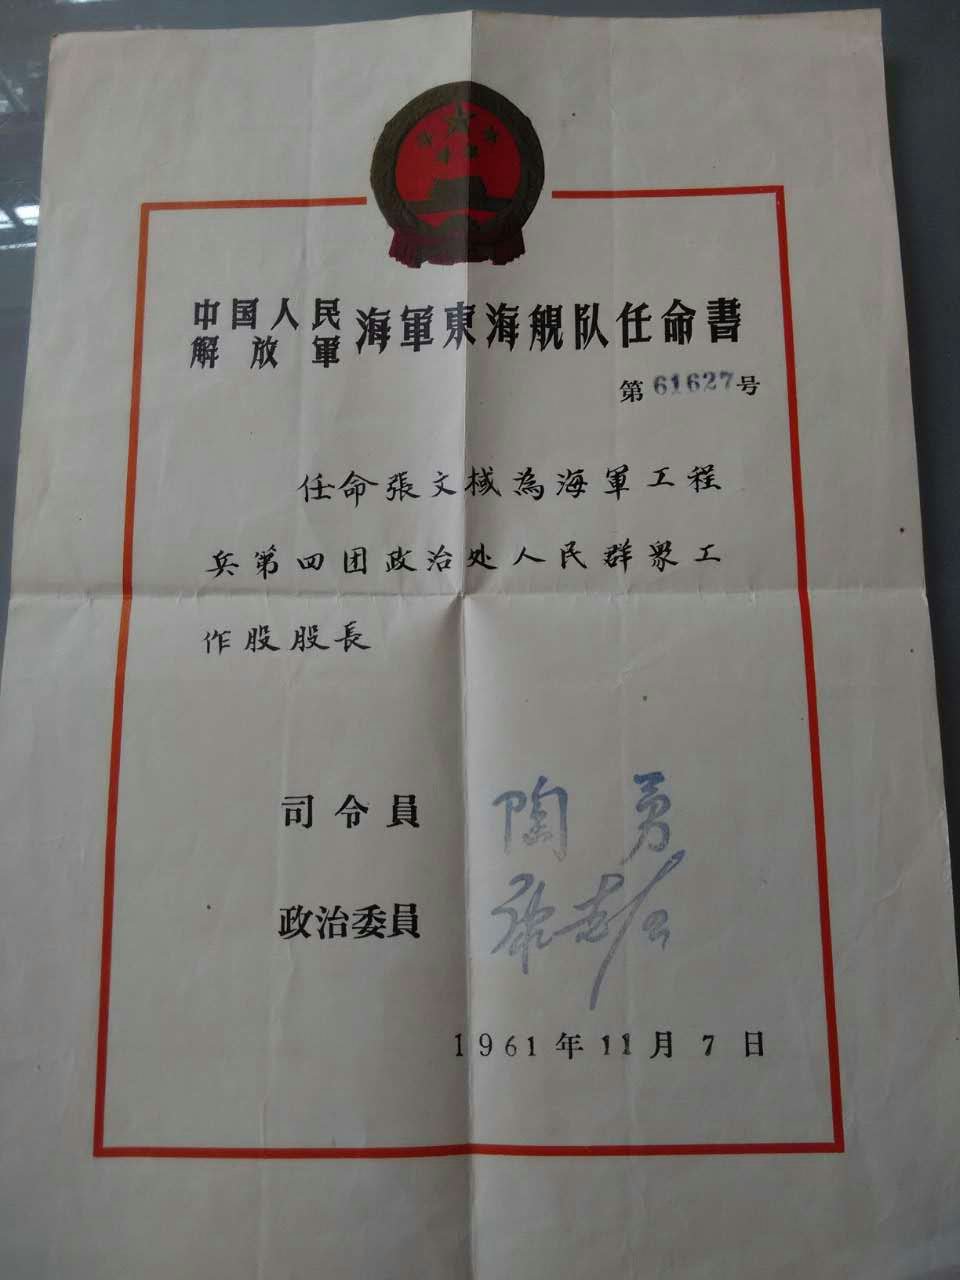 中国人民
解放軍 海軍東海舰队任命書
第61627号
任命張文棫為海軍工程
兵第四团政治处人民群衆工
作股股長
司令員 陶勇
政治委員
1961年11月7日